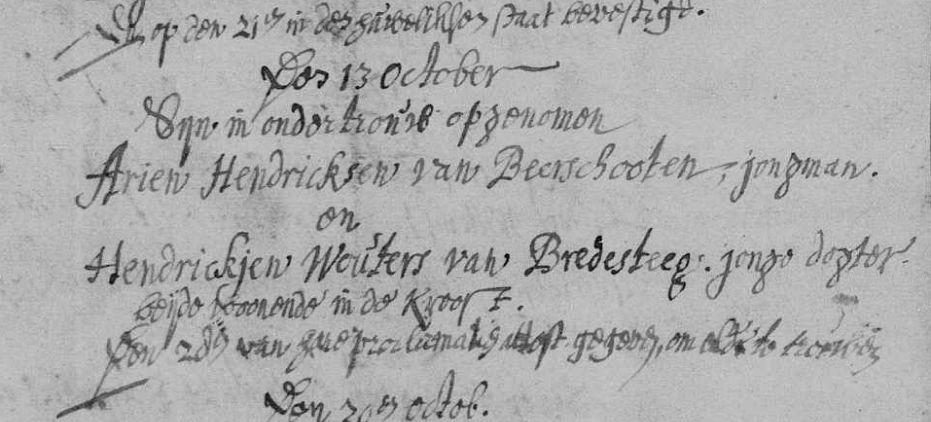 En op den 21en in den huwelikhsen staat bevestigt.
Den 13 October
Syn in ondertrouw opgenomen
Arien Hendricksen van Beerschooten, jongman.
en
Hendrickjen Wouters van Bredesteeg. jonge dogter.
beijde woonende in de Kroost.
Den 28 van hare proclamatis attest gegeven, om te trouwen
Den 20en octob.